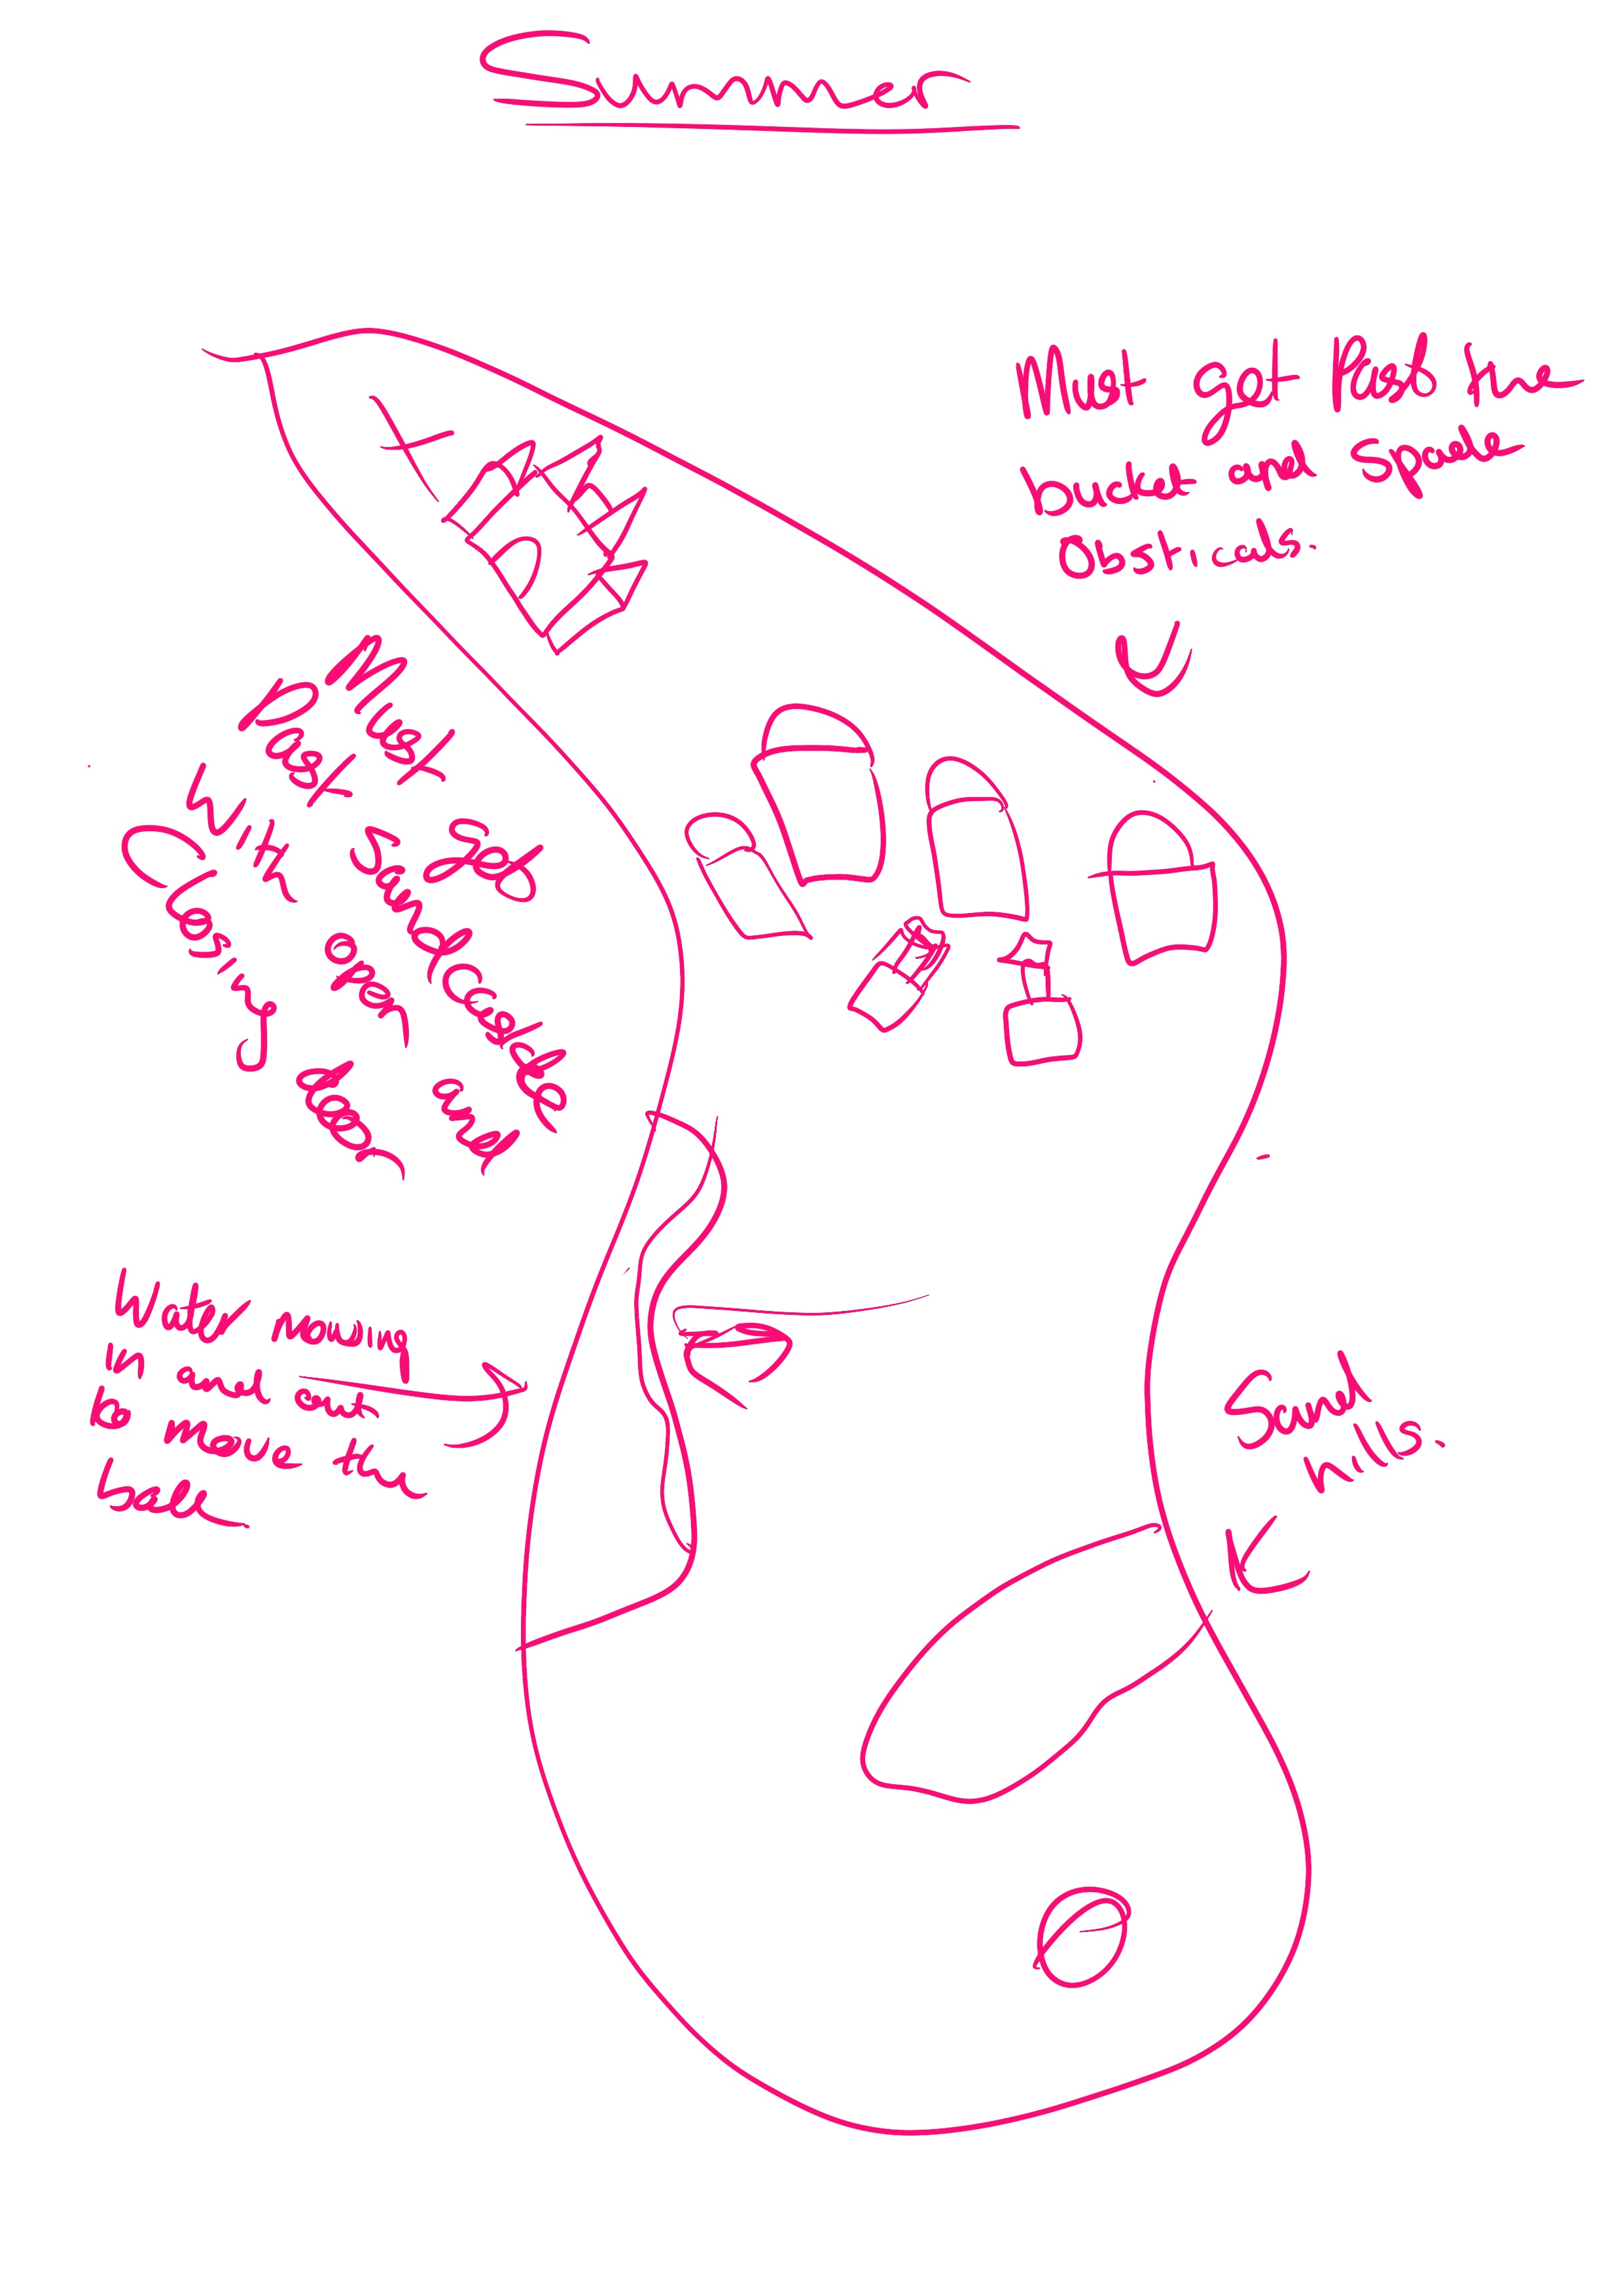 Summer
Must get Past the
bucket and Spade
Obsticals.
Must go
Past SandCastle
with open and
Closing door
Water moving
in and out
to move the
ball
Sand
hills.